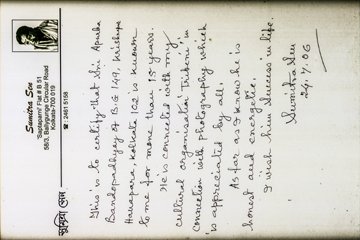 Sumitra Sen
'Saptaparni' Flat # B 51
58/3, Ballygunge Circular Road
Kolkata-700 019
☎ : 2461 5158
সুমিত্রা সেন
This is to certify that Shri Apurba
Bandopadhyay of B.G 149, Krishnapur
Hanapara, Kolkata 102 is known
to me for more than 15 years.
He is connected with my
cultural organisation 'Triveni' in
connection with photography which
is appreciated by all.
As far as I know he is
honest and energetic.
I wish him success in life.
Sumitra Sen
24.7.06